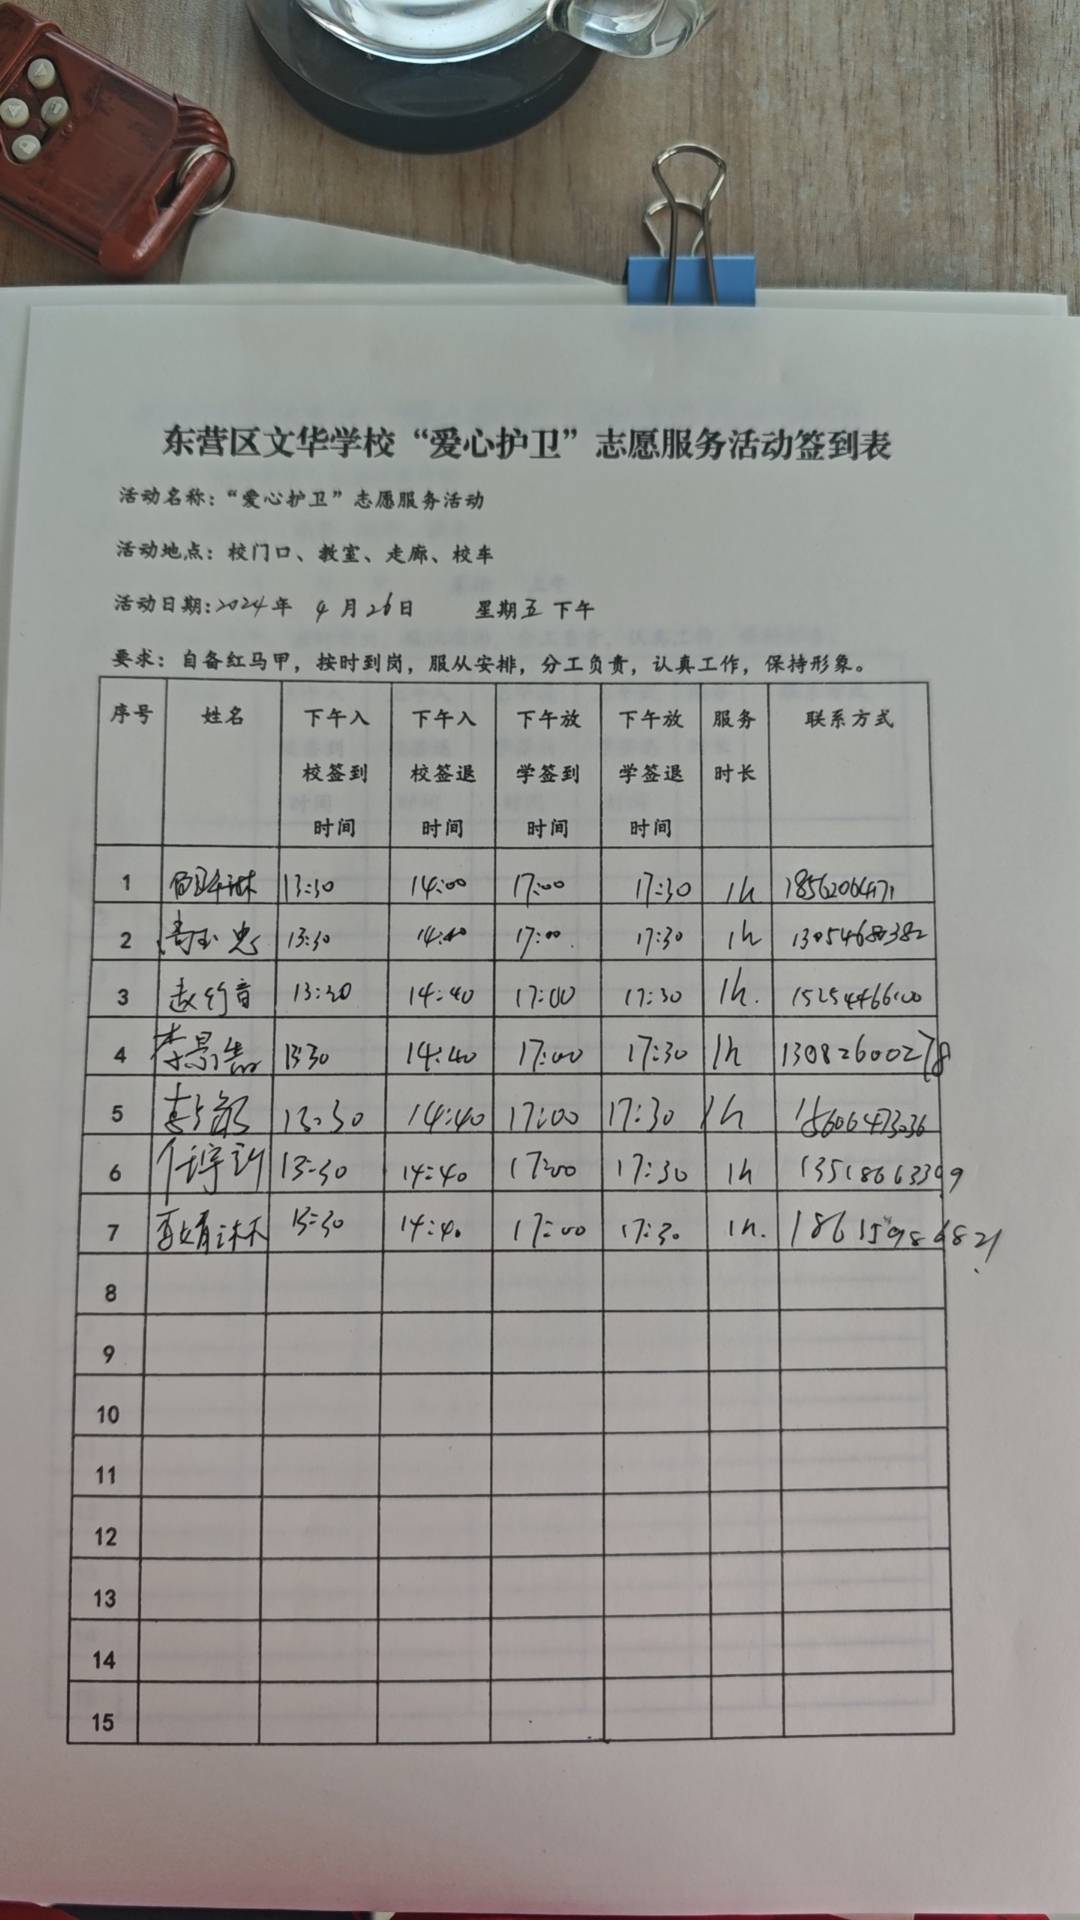 东营区文华学校“爱心护卫”志愿服务活动签到表
活动名称：“爱心护卫”志愿服务活动
活动地点：校门口、教室、走廊、校车
活动日期：2024年 4月26日 星期五 下午
要求：自备红马甲，按时到岗，服从安排，分工负责，认真工作，保持形象。
序号 姓名 下午入校签到时间 下午入校签退时间 下午放学签到时间 下午放学签退时间 服务时长 联系方式
1 13:30 14:00 17:00 17:30 1h
2 13:30 17:00 17:30 1h 13054680382
3 14:40 17:00 17:30 1h. 15254466100
4 李景浩 1330 14:40 17:00 17:30 1h 13082600278
5 13:30 14:40 17:00 17:30 1h 15606473036
6 13:30 14:40 17:00 17:30 1h
7 13:30 14:40 17:00 17:30 1h. 18615986821
8
9
10
11
12
13
14
15